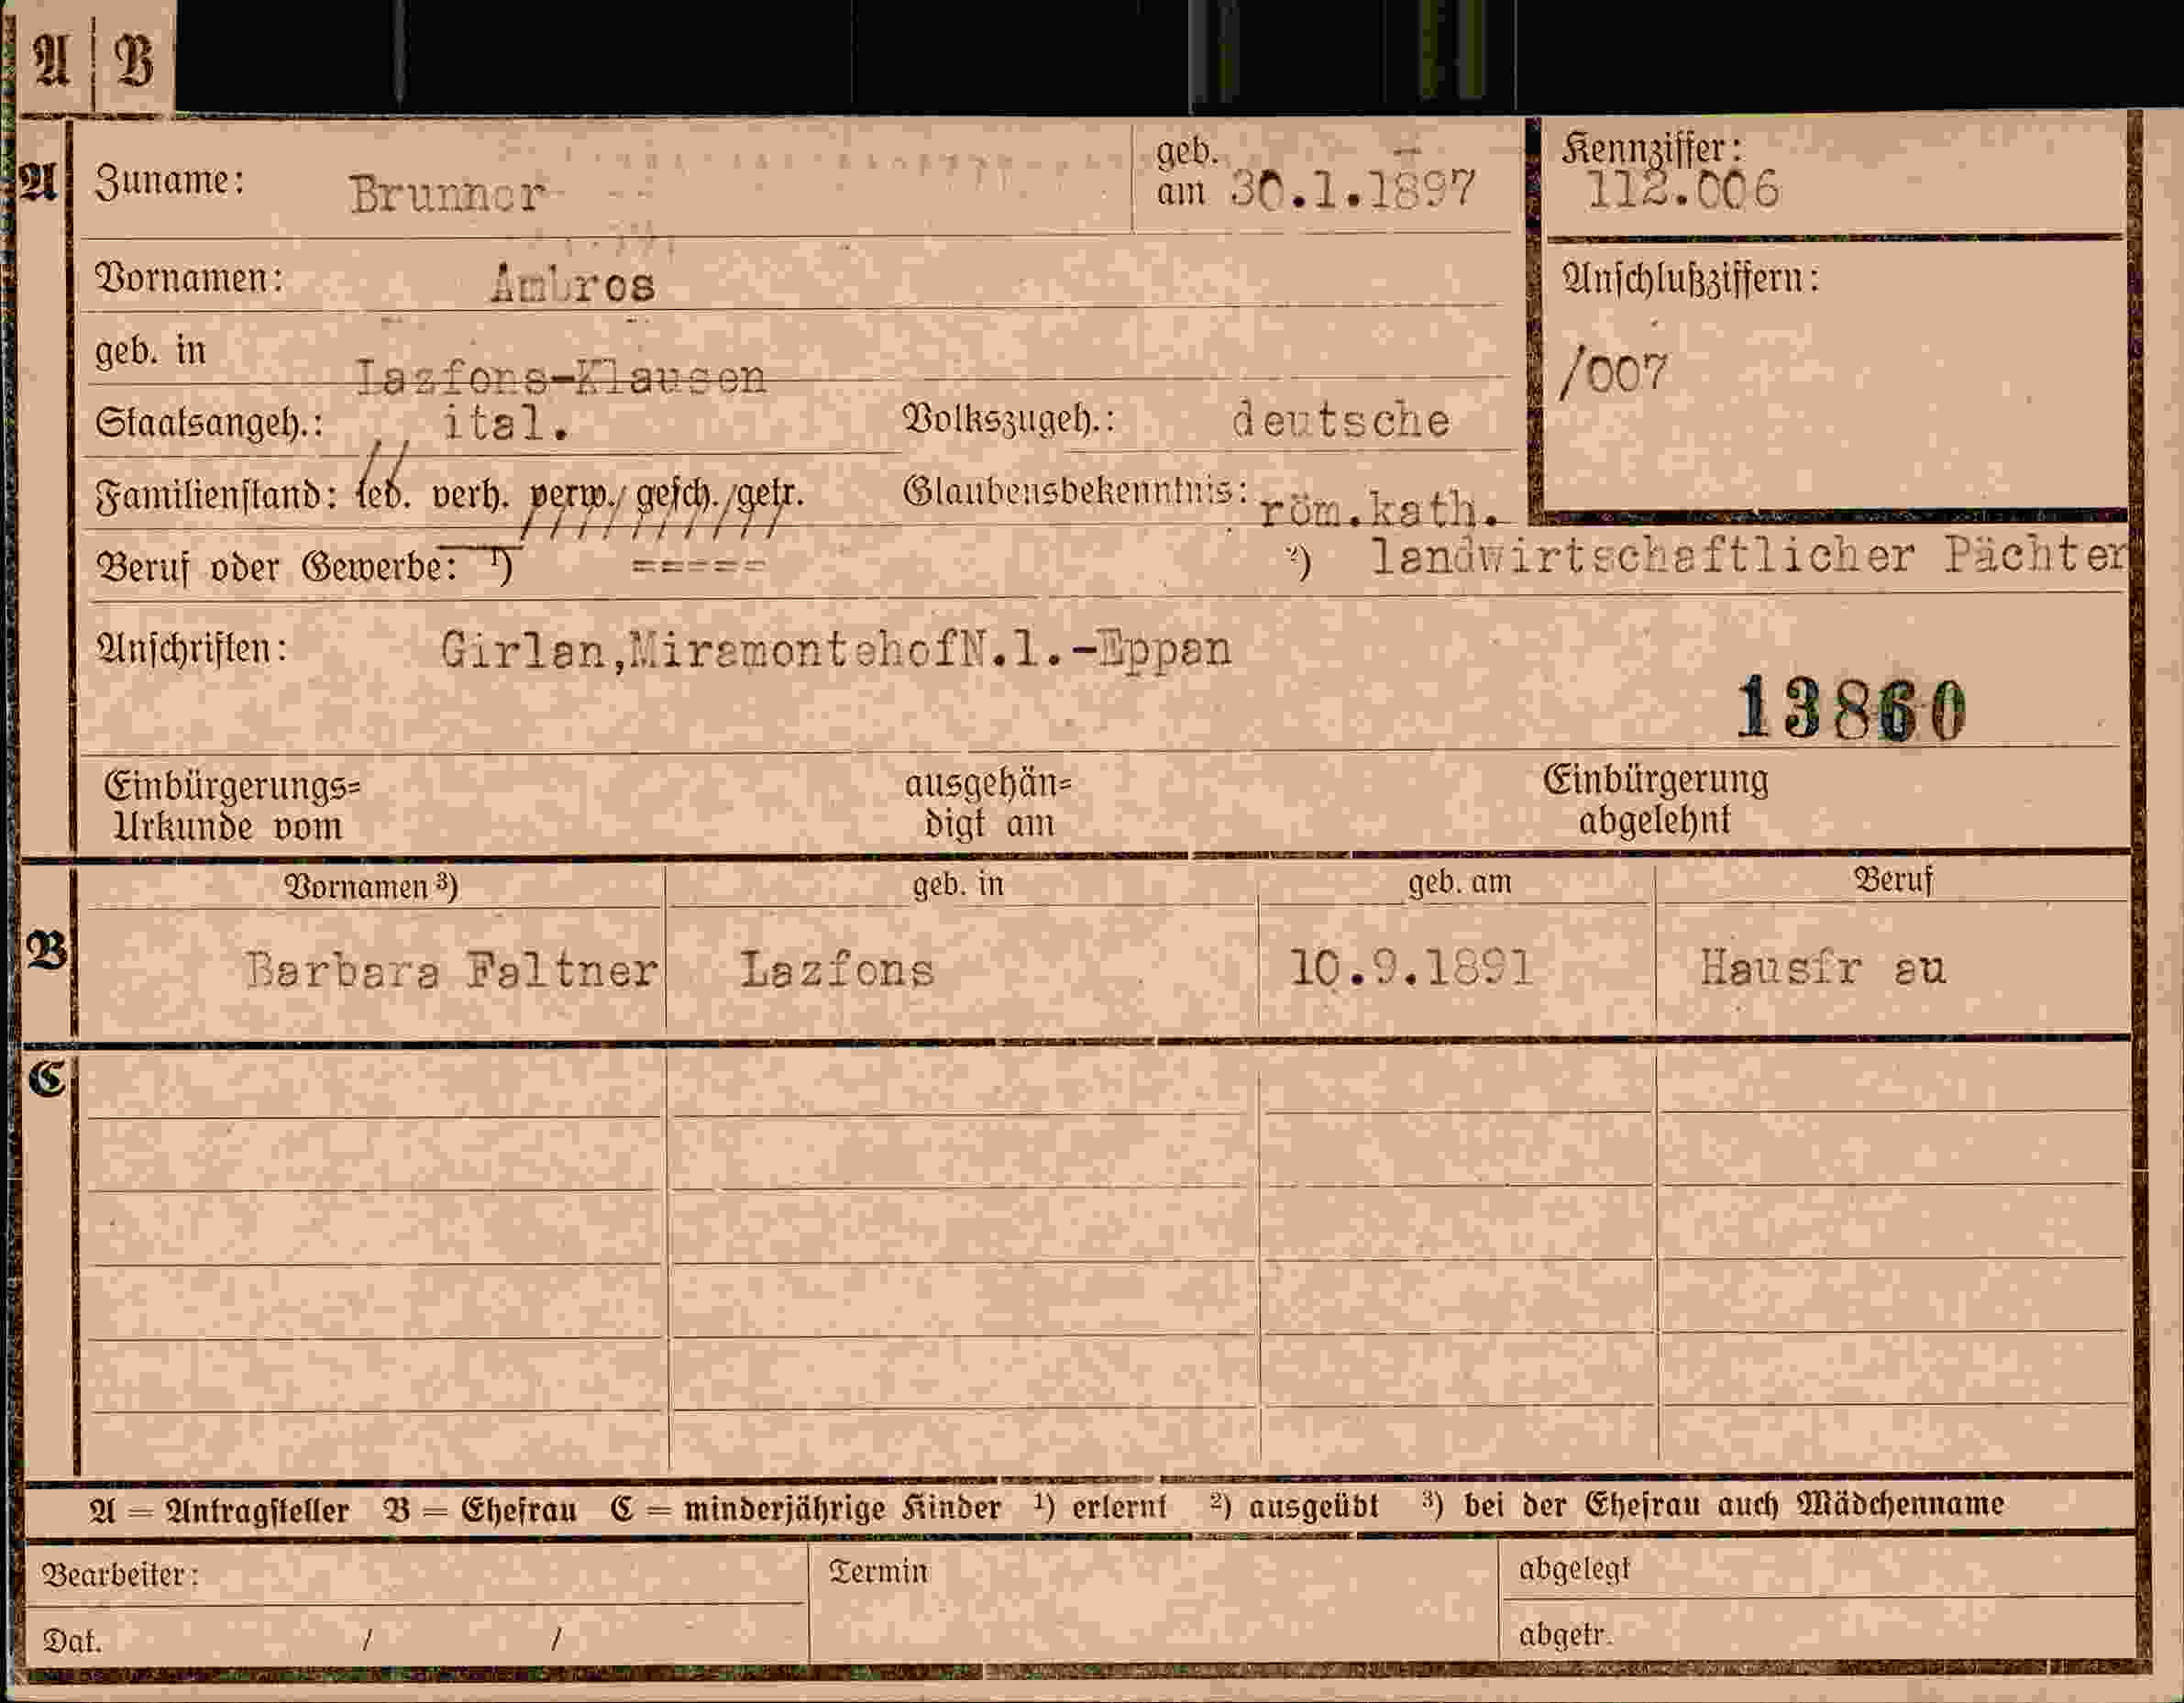 A | B
A Zuname: Brunner geb. am 30.1.1897 Kennziffer: 112.006
Vornamen: Ambros Anschlußziffern:
geb. in Lazfons-Klausen /007
Staatsangeh.: ital. Volkszugeh.: deutsche
Familienstand: led. verh. verw. gesch. getr. Glaubensbekenntnis: röm.kath.
Beruf oder Gewerbe: ¹) ===== ²) landwirtschaftlicher Pächter
Anschriften: Girlan,MiramontehofN.1.-Eppan
13860
Einbürgerungs= ausgehän= Einbürgerung
Urkunde vom digt am abgelehnt
Vornamen ³) geb. in geb. am Beruf
B Barbara Faltner Lazfons 10.9.1891 Hausfr au
C
A = Antragsteller B = Ehefrau C = minderjährige Kinder ¹) erlernt ²) ausgeübt ³) bei der Ehefrau auch Mädchenname
Bearbeiter: Termin abgelegt
Dat. / / abgetr.